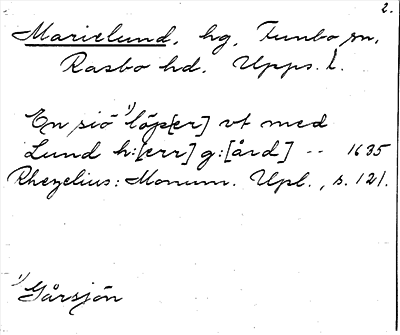 2.
Marielund, hg, Funbo sn,
Rasbo hd. Upps. l.
En siö ¹) löp[er] vt med
Lund h:[err] g:[ård] -- 1635
Rhezelius: Monum. Upl., s. 121.
¹) Gårsjön